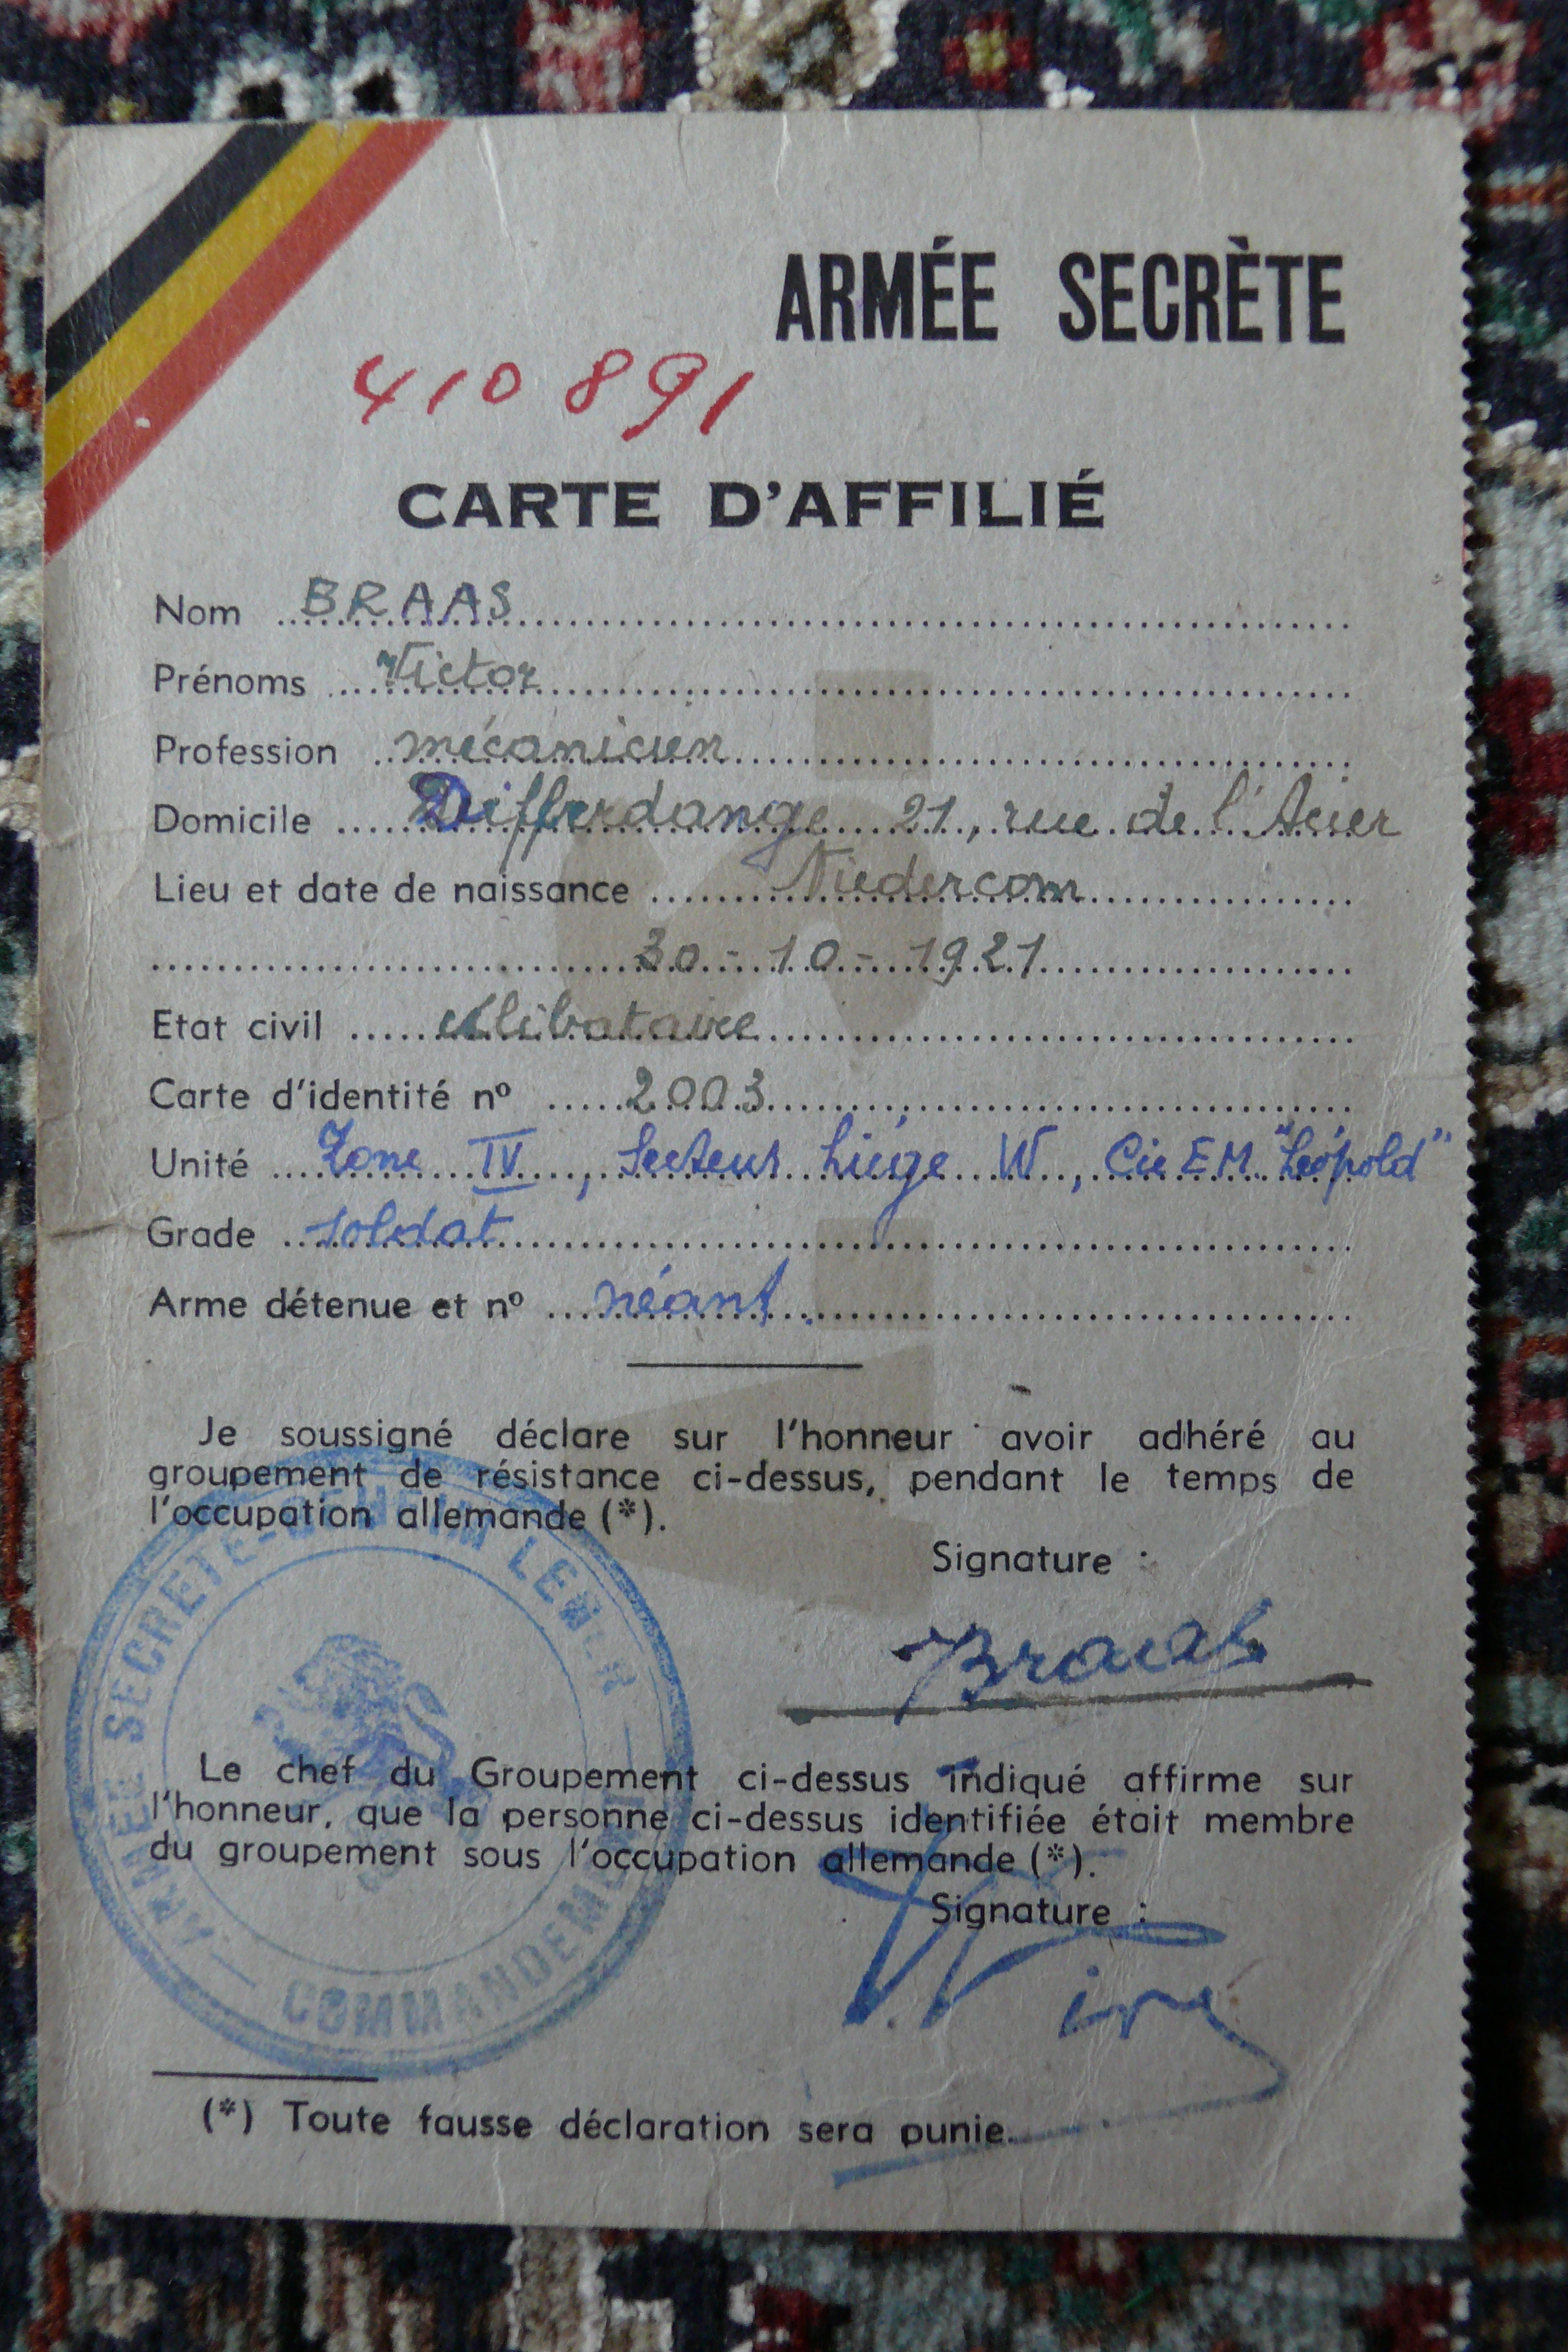 ARMÉE SECRÈTE
410891
CARTE D'AFFILIÉ
Nom BRAAS
Prénoms Victor
Profession mécanicien
Domicile Differdange 21, rue de l'Acier
Lieu et date de naissance Niedercorn
30-10-1921
Etat civil célibataire
Carte d'identité nº 2003
Unité Zone IV, Secteur Liège W, Cie E.M. "Léopold"
Grade soldat
Arme détenue et nº néant.
Je soussigné déclare sur l'honneur avoir adhéré au
groupement de résistance ci-dessus, pendant le temps de
l'occupation allemande (*).
Signature :
Braas
Le chef du Groupement ci-dessus indiqué affirme sur
l'honneur, que la personne ci-dessus identifiée était membre
du groupement sous l'occupation allemande (*).
Signature :
ARMEE SECRETE
COMMANDEMENT
(*) Toute fausse déclaration sera punie.